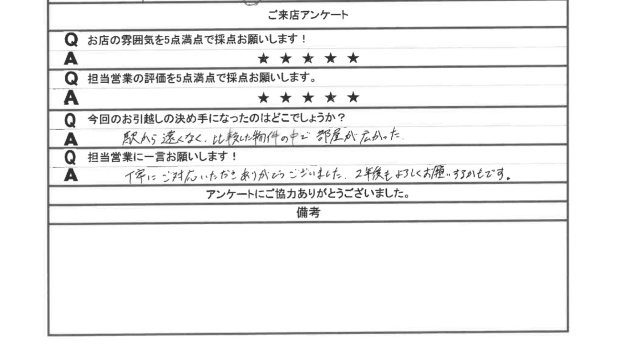 ご来店アンケート
Q お店の雰囲気を5点満点で採点お願いします！
A ★ ★ ★ ★ ★
Q 担当営業の評価を5点満点で採点お願いします。
A ★ ★ ★ ★ ★
Q 今回のお引越しの決め手になったのはどこでしょうか？
A 駅から遠くなく、比較した物件の中で部屋が広かった
Q 担当営業に一言お願いします！
A 丁寧にご対応いただきありがとうございました、2年後もよろしくお願いするかもです。
アンケートにご協力ありがとうございました。
備考